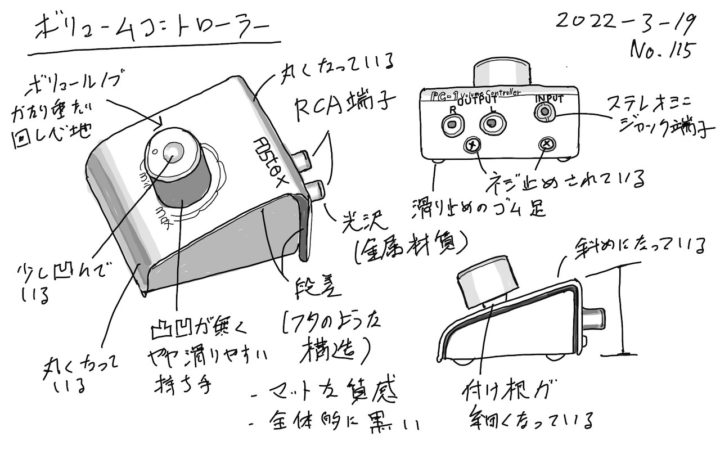 ボリュームコントローラー
2022-3-19
No.115
ボリュームノブ
かなり重たい
回し心地
丸くなっている
RCA端子
Fostex
min
max
PC-1 Volume Controller
OUTPUT
INPUT
R
L
ステレオミニ
ジャック端子
ネジ止めされている
滑り止めのゴム足
光沢
(金属材質)
少し凹んで
いる
丸くなって
いる
凸凹が無く
やや滑りやすい
持ち手
段差
(フタのような
構造)
- マットな質感
- 全体的に黒い
斜めになっている
付け根が
細くなっている